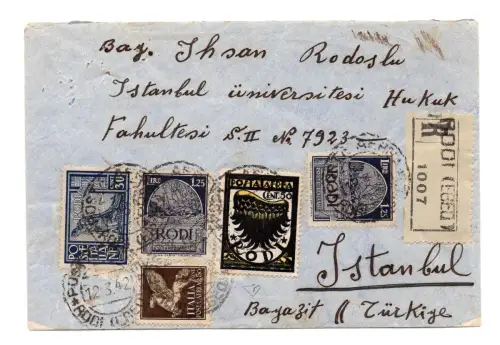 Bay. Ihsan Rodoslu
Istanbul üniversitesi Hukuk
Fakultesi S.II No 7923
R
RODI (EGEO)
1007
LIRE 1.25
RODI
POSTA AEREA
CENT. 50
RODI
LIRE 1.25
POSTE ITALIANE
30
ITALIA
12.3.42
RODI
Istanbul
Bayazit // Türkiye